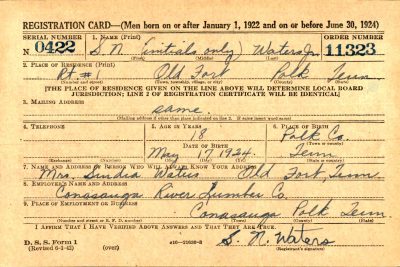 REGISTRATION CARD—(Men born on or after January 1, 1922 and on or before June 30, 1924)
SERIAL NUMBER 1. NAME (Print) ORDER NUMBER
N 0422 S. N. (initials only) Waters Jr. 11323
(First) (Middle) (Last)
2. PLACE OF RESIDENCE (Print)
Rt #1 Old Fort Polk Tenn
(Number and street) (Town, township, village, or city) (County) (State)
[THE PLACE OF RESIDENCE GIVEN ON THE LINE ABOVE WILL DETERMINE LOCAL BOARD
JURISDICTION; LINE 2 OF REGISTRATION CERTIFICATE WILL BE IDENTICAL]
3. MAILING ADDRESS
same.
(Mailing address if other than place indicated on line 2. If same insert word same)
4. TELEPHONE 5. AGE IN YEARS 6. PLACE OF BIRTH
18 Polk Co.
DATE OF BIRTH (Town or county)
May 17 1924 Tenn
(Exchange) (Number) (Mo.) (Day) (Yr.) (State or country)
7. NAME AND ADDRESS OF PERSON WHO WILL ALWAYS KNOW YOUR ADDRESS
Mrs. Waters Old Fort Tenn.
8. EMPLOYER'S NAME AND ADDRESS
Conasauga River Lumber Co.
9. PLACE OF EMPLOYMENT OR BUSINESS
Conasauga Polk Tenn
(Number and street or R. F. D. number) (Town) (County) (State)
I AFFIRM THAT I HAVE VERIFIED ABOVE ANSWERS AND THAT THEY ARE TRUE.
D. S. S. Form 1 S. N. Waters
(Revised 6-1-42) (over) (Registrant's signature)